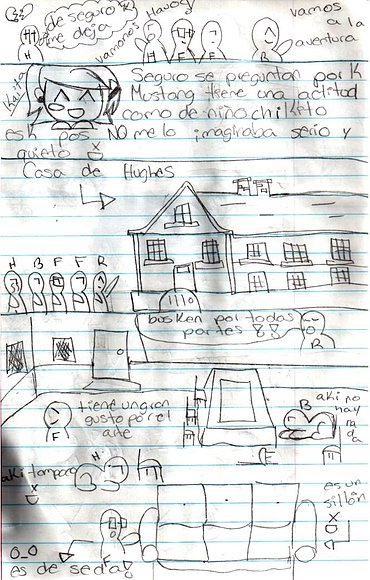 de seguro
me deja
H
vamonos
Havoc
H
F
F
vamos
a la
aventura
B
Karita
Seguro se preguntan por k
Mustang tiene una actitud
como de niño chikito
es k pos NO me lo imaginaba serio y
quieto
Casa de Hughes
H B F F R
1110
busken por todas
partes
R
tiene un gran
gusto por el
arte
F
B
aki no
hay
nada
F
aki tampoco
es un
sillón
F
O_O
es de seda!